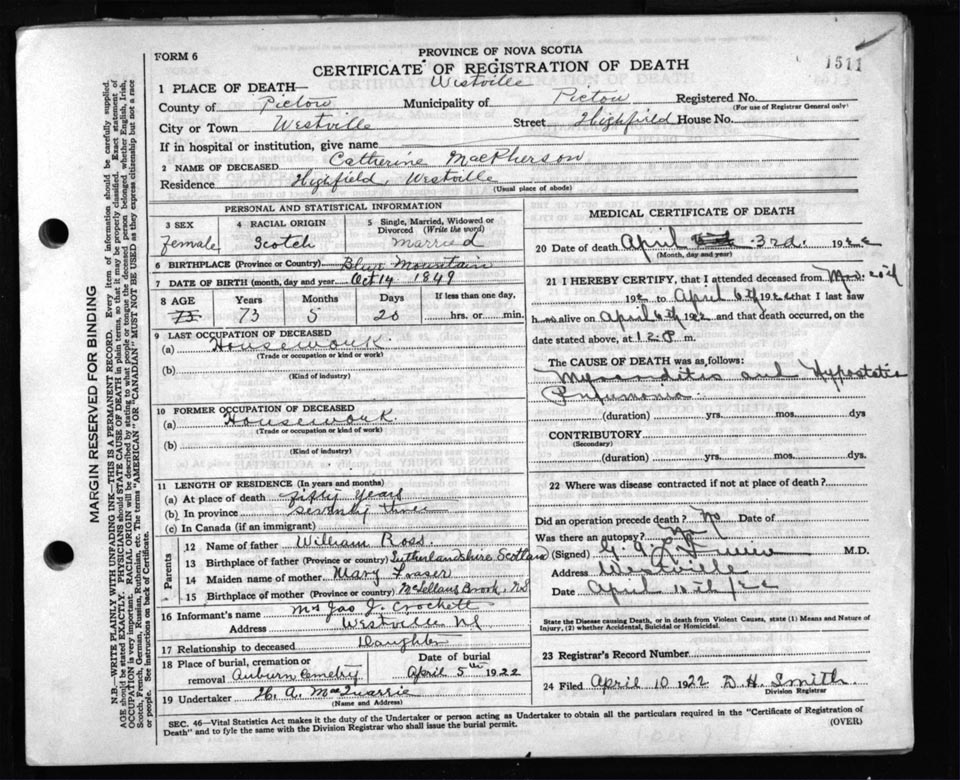 PROVINCE OF NOVA SCOTIA
FORM 6
CERTIFICATE OF REGISTRATION OF DEATH
1511
1 PLACE OF DEATH— Westville
County of Pictou Municipality of Pictou Registered No.
(For use of Registrar General only)
City or Town Westville Street Highfield House No.
If in hospital or institution, give name
2 NAME OF DECEASED Catherine MacPherson
Residence Highfield, Westville
(Usual place of abode)
MARGIN RESERVED FOR BINDING
N.B.—WRITE PLAINLY WITH UNFADING INK—THIS IS A PERMANENT RECORD. Every item of information should be carefully supplied.
AGE should be stated EXACTLY. PHYSICIANS should STATE CAUSE OF DEATH in plain terms, so that it may be properly classified. Exact statement of
OCCUPATION is very important. RACIAL ORIGIN will be described by stating to what people or tongue the deceased person belonged whether English, Irish,
Scotch, French, German, Russian, Ruthenian, etc. The terms "AMERICAN" OR "CANADIAN" MUST NOT BE USED as they express citizenship but not a race
or people. See instructions on back of Certificate.
PERSONAL AND STATISTICAL INFORMATION
3 SEX
female
4 RACIAL ORIGIN
Scotch
5 Single, Married, Widowed or
Divorced (Write the word)
married
6 BIRTHPLACE (Province or Country) Blue Mountain
7 DATE OF BIRTH (month, day and year) Oct 14 1849
8 AGE Years Months Days If less than one day,
73 73 5 20 hrs. or min.
9 LAST OCCUPATION OF DECEASED
(a) Housework
(Trade or occupation or kind or work)
(b)
(Kind of industry)
10 FORMER OCCUPATION OF DECEASED
(a) Housework
(Trade or occupation or kind of work)
(b)
(Kind of industry)
11 LENGTH OF RESIDENCE (In years and months)
(a) At place of death fifty years
(b) In province seventy three
(c) In Canada (if an immigrant)
Parents
12 Name of father William Ross
13 Birthplace of father (Province or country) Sutherlandshire Scotland
14 Maiden name of mother Mary
15 Birthplace of mother (Province or country) McLellans Brook, NS
16 Informant's name Mrs Jas J. Crockett
Address Westville NS
17 Relationship to deceased Daughter
18 Place of burial, cremation or Date of burial
removal Auburn Cemetry April 5th 1922
19 Undertaker H. A. MacQuarrie
(Name and Address)
MEDICAL CERTIFICATE OF DEATH
20 Date of death April 3rd. 1922
(Month, day and year)
21 I HEREBY CERTIFY, that I attended deceased from
192 to April 6th 1922 that I last saw
h alive on April 6th 1922 and that death occurred, on
date stated above, at 12 P m.
The CAUSE OF DEATH was as follows:
Myocarditis and Hypostatic
Pneumonia
(duration) yrs. mos. dys
CONTRIBUTORY
(Secondary)
(duration) yrs. mos. dys.
22 Where was disease contracted if not at place of death?
Did an operation precede death? No Date of
Was there an autopsy? No
(Signed) M.D.
Address Westville
Date April 10th/22
State the Disease causing Death, or in death from Violent Causes, state (1) Means and Nature of
Injury, (2) whether Accidental, Suicidal or Homicidal.
23 Registrar's Record Number
24 Filed April 10 1922 D H. Smith
Division Registrar
SEC. 46—Vital Statistics Act makes it the duty of the Undertaker or person acting as Undertaker to obtain all the particulars required in the "Certificate of Registration of
Death" and to fyle the same with the Division Registrar who shall issue the burial permit.
(OVER)